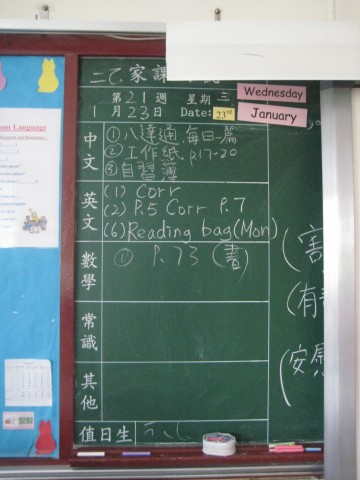 二乙 家課
第21週 星期三 Wednesday
1月23日 Date: 23rd January
中文
① 八達通 每日一篇
② 工作紙 p17-20
③ 自習簿
英文
(1) Corr
(2) P.5 Corr P.7
(6) Reading bag (Mon)
數學
① P.73 (書)
常識
其他
值日生 5、6
(害
(有
(安慰
om Language